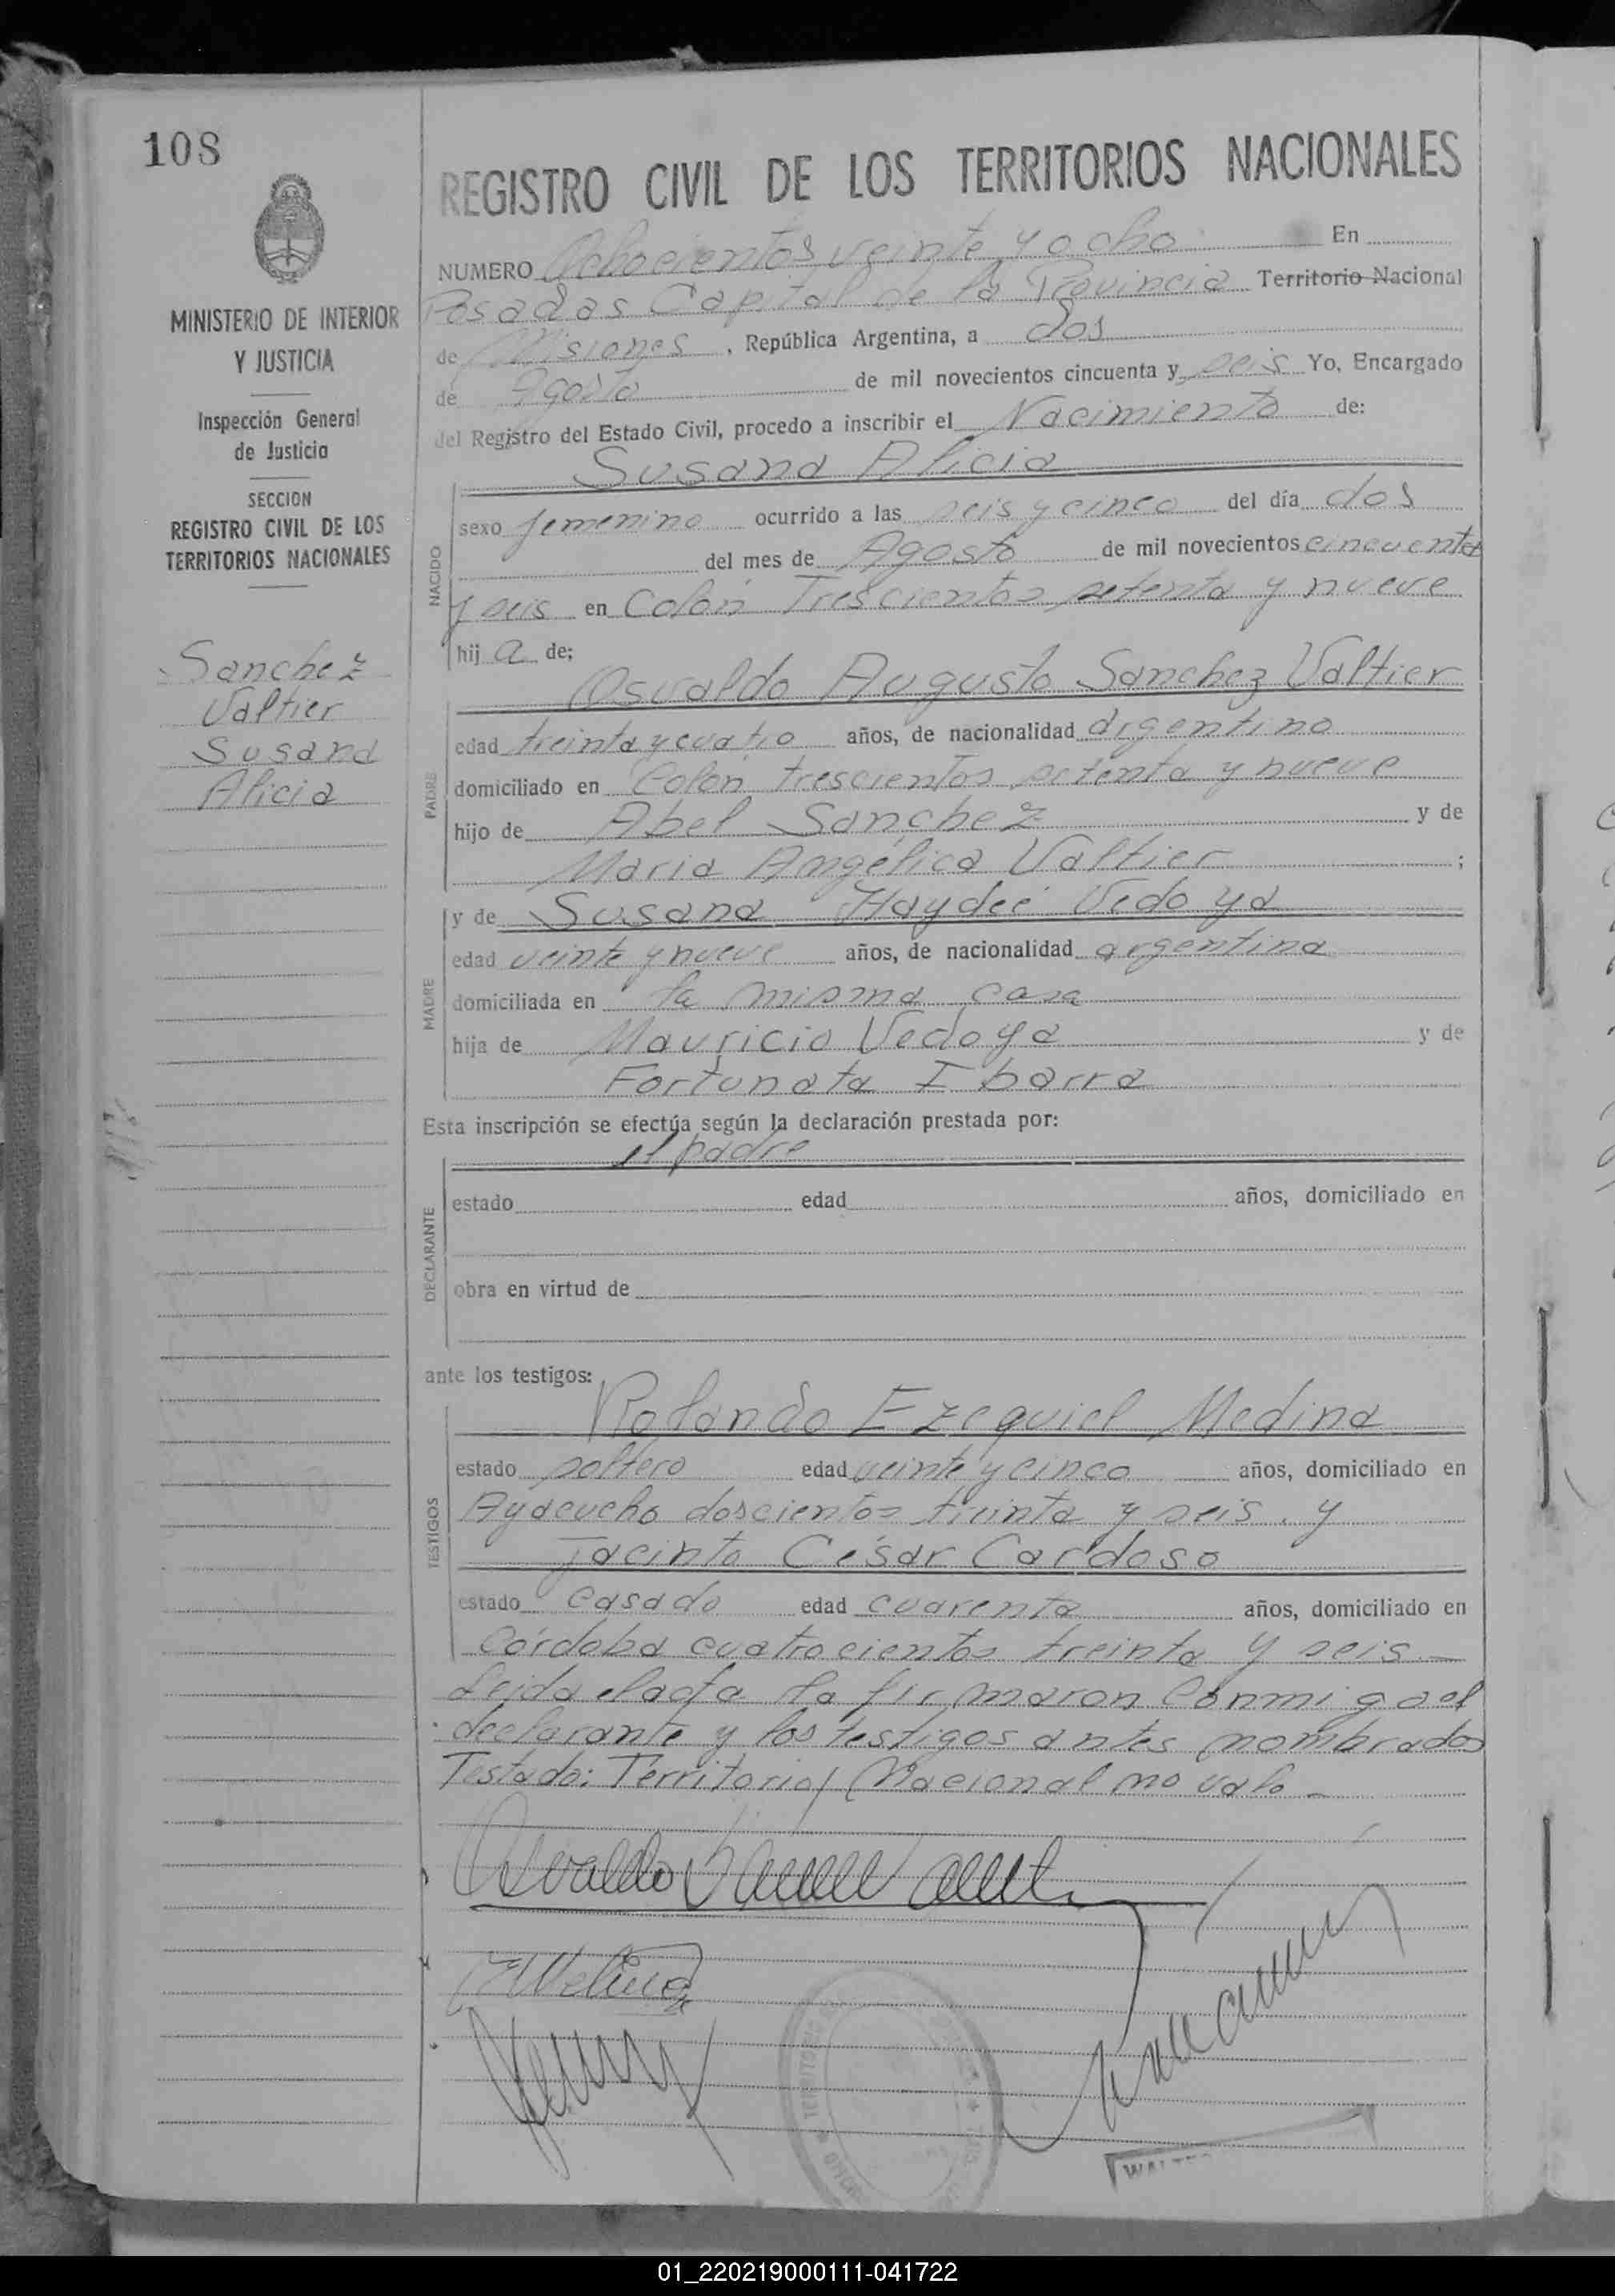 108
REGISTRO CIVIL DE LOS TERRITORIOS NACIONALES
MINISTERIO DE INTERIOR
Y JUSTICIA
Inspección General
de Justicia
SECCION
REGISTRO CIVIL DE LOS
TERRITORIOS NACIONALES
Sanchez
Valtier
Susana
Alicia
NUMERO Ochocientos veinte y ocho En
Posadas Capital de la Provincia Territorio Nacional
de Misiones, República Argentina, a dos
de Agosto de mil novecientos cincuenta y seis Yo, Encargado
del Registro del Estado Civil, procedo a inscribir el Nacimiento de:
Susana Alicia
NACIDO
sexo femenino ocurrido a las seis y cinco del día dos
del mes de Agosto de mil novecientos cincuenta
y seis en Colón Trescientos setenta y nueve
hij a de;
Osvaldo Augusto Sanchez Valtier
PADRE
edad treinta y cuatro años, de nacionalidad argentino
domiciliado en Colón trescientos setenta y nueve
hijo de Abel Sanchez y de
Maria Angélica Valtier ;
MADRE
y de Susana Haydeé Vedoya
edad veinte y nueve años, de nacionalidad argentina
domiciliada en la misma casa
hija de Mauricio Vedoya y de
Fortunata Ibarra
Esta inscripción se efectúa según la declaración prestada por:
el padre
DECLARANTE
estado edad años, domiciliado en
obra en virtud de
ante los testigos:
Rolando Ezequiel Medina
TESTIGOS
estado soltero edad veinte y cinco años, domiciliado en
Ayacucho doscientos treinta y seis. y
Jacinto César Cardoso
estado casado edad cuarenta años, domiciliado en
Córdoba cuatrocientos treinta y seis
Leida el acta la firmaron conmigo el
declarante y los testigos antes nombrados
Testado: Territorio/Nacional no vale
Osvaldo Sanchez Valtier
REMedina
WALTER
01_220219000111-041722